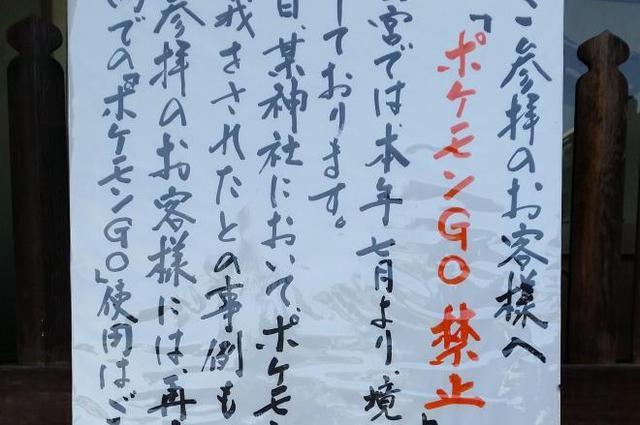 ご参拝のお客様へ
「ポケモンGO 禁止
宮では本年七月より、境
しております。
日、某神社においてポケモ
我きされたとの事例も
参拝のお客様には、再
内での『ポケモンGO』使用はご